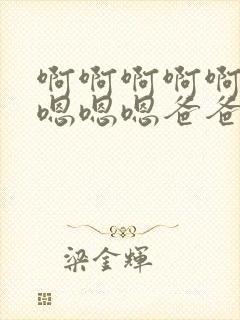 啊啊啊啊啊
嗯嗯嗯爸爸
梁金輝